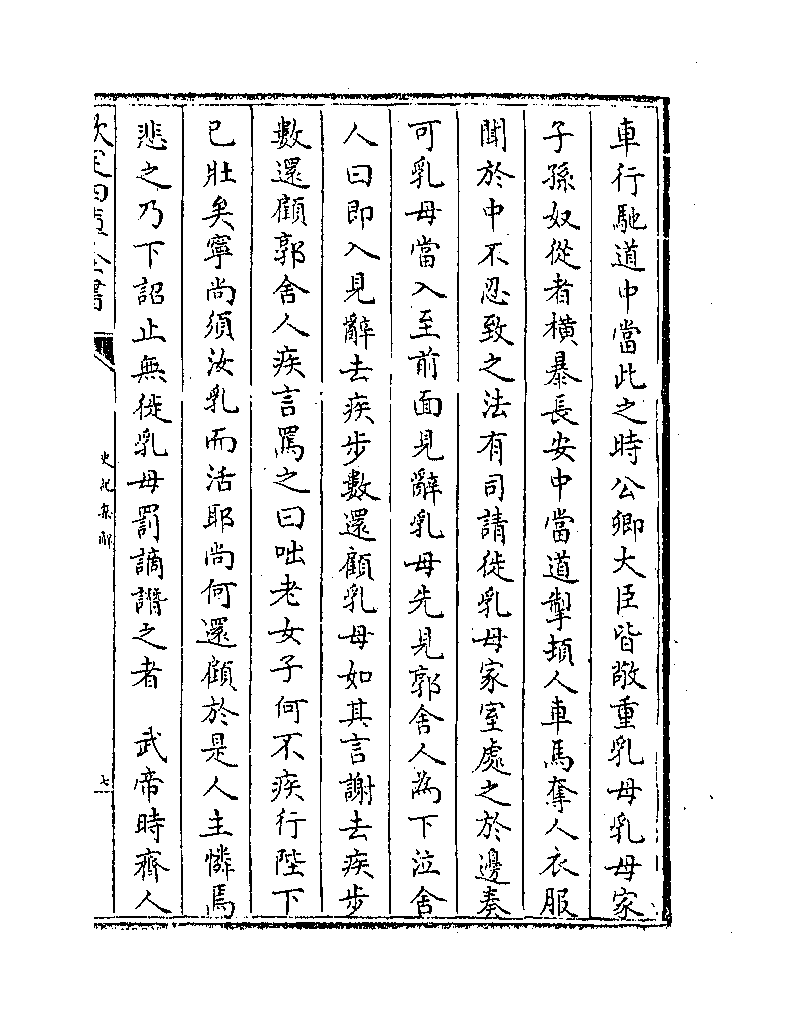 車行馳道中當此之時公卿大臣皆敬重乳母乳母家
子孫奴從者橫暴長安中當道掣頓人車馬奪人衣服
聞於中不忍致之法有司請徙乳母家室處之於邊奏
可乳母當入至前面見辭乳母先見郭舍人為下泣舍
人曰即入見辭去疾步數還顧乳母如其言謝去疾步
數還顧郭舍人疾言罵之曰咄老女子何不疾行陛下
已壯矣寧尚須汝乳而活耶尚何還顧於是人主憐焉
悲之乃下詔止無徙乳母罰謫譖之者　武帝時齊人
欽定四庫全書
史記集解
七